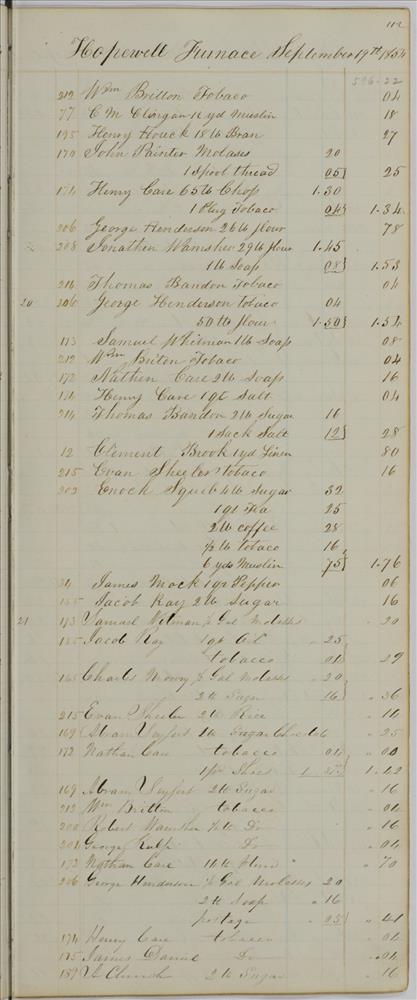 112
Hopewell Furnace September 19th 1854
596.22
212 Wm Britton Tobaco 04
77 C M Clingan 1½ yd Muslin 18
195 Henry Houck 18 lb Bran 27
170 John Painter Molases 20
1 Spool thread 05} 25
174 Henry Care 65 lb Chop 1.30
1 Plug Tobaco 04} 1.34
206 George Henderson 26 lb flour 78
208 Jonathan Wamsher 29 lb flour 1.45
1 lb Soap 08} 1.53
214 Thomas Bandon Tobaco 04
20 206 George Henderson tobaco 04
50 lb flour 1.50} 1.54
193 Samuel Whitman 1 lb Soap 08
212 Wm Briton Tobaco 04
172 Nathen Care 2 lb Soap 16
174 Henry Care 1 qt Salt 04
214 Thomas Bandon 2 lb Sugar 16
1 Sack Salt 12} 28
12 Clement Brook 1 yd Linen 80
215 Evan Sheeler tobaco 16
202 Enoch Squib 4 lb Sugar 32
1 qr Tea 25
2 lb Coffee 28
½ lb tobaco 16
6 yds Muslin 75} 1.76
James Mock 1 qr Pepper 06
185 Jacob Kay 2 lb Sugar 16
21 193 Samuel Witman ½ Gal Molasses " 20
185 Jacob Kay 1 qt Oil " 25
tobacco 04} 29
165 Charles Mowry ½ Gal Molasses " 20
2 lb Sugar 16} " 36
215 Evan Sheeler 2 lb Rice " 14
169 Abram Seyfert 1 lb Sugar " 25
172 Nathan Care tobacco 04 " 00
1 pr Shoes 1.42
169 Abram Seyfert 2 lb Sugar " 16
212 Wm Britton tobacco " 04
200 Robert Wamsher ½ lb Do " 16
204 George Do " 04
172 Nathan Care " 70
206 George Henderson ½ Gal Molasses 20
2 lb Soap " 16
postage " 05} " 41
174 Henry Care tobacco " 04
175 James Do " 04
187 Church 2 lb Sugar " 16